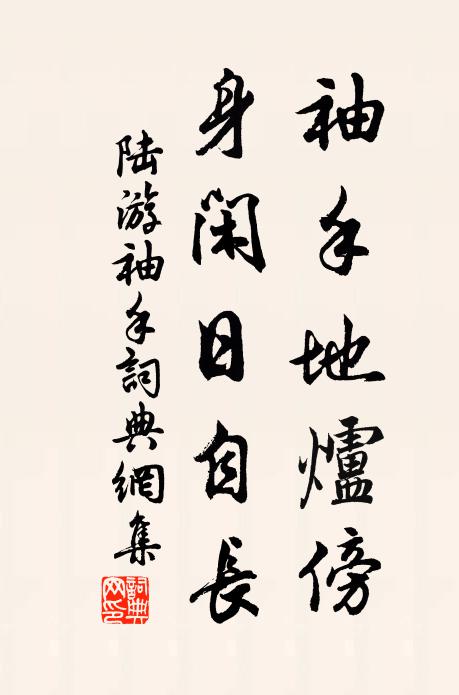 袖手地爐傍
身閑日自長
陸游袖手詞典網集
詞典网印